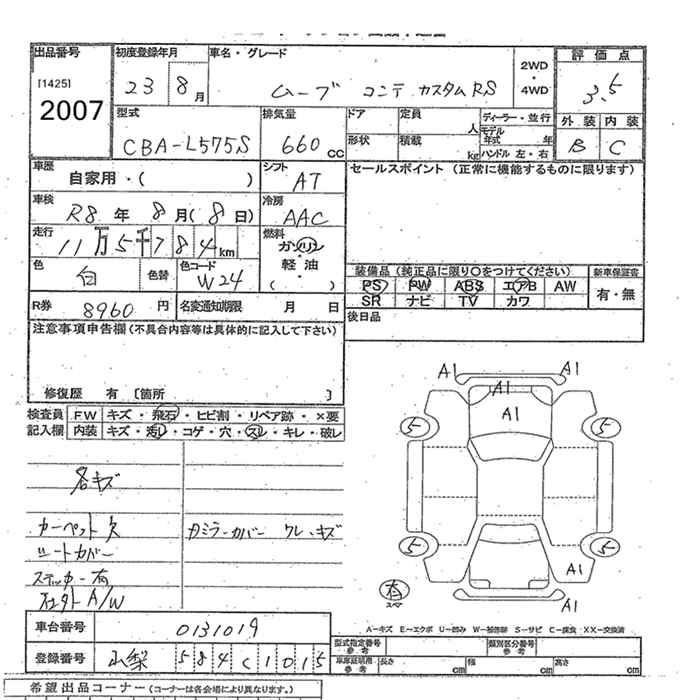 出品番号 初度登録年月 車名・グレード 評価点
[1425] 23 8月 ムーブ コンテ カスタムRS 2WD・4WD 3.5
2007
型式 排気量 ドア 定員 人 ディーラー・並行 外装 内装
CBA-L575S 660cc 形状 積載 kg モデル年式 年 ハンドル 左・右 B C
車歴 シフト セールスポイント(正常に機能するものに限ります)
自家用・( ) AT
車検 冷房
R8年 8月(8日) AAC
走行 燃料
11万5千784km ガソリン
色 色替 色コード 軽油
白 W24 ( ・ )
装備品(純正品に限り○をつけてください) 新車保証書
PS PW ABS エアB AW 有・無
SR ナビ TV カワ
R券 8960円 名変通知期限 月 日 後日品
注意事項申告欄(不具合内容等は具体的に記入して下さい)
修復歴 有 〔箇所 〕
検査員 FW キズ・飛石・ヒビ割・リペア跡・×要
記入欄 内装 キズ・汚レ・コゲ・穴・スレ・キレ・破レ
各キズ
カーペット欠 Fミラーカバー ワレ、キズ
シートカバー
ステッカー有
社外A/W
A1 A1
A1
A1
5 5
5 5
A1
A1
有
スペア
A-キズ E-エクボ U-凹み W-補修跡 S-サビ C-腐食 XX-交換済
車台番号 0131019
登録番号 山梨 584 C 1015
型式指定番号 参考 類別区分番号 参考
車庫証明用 参考 長さ cm 幅 cm 高さ cm
希望出品コーナー(コーナーは各会場により異なります。)